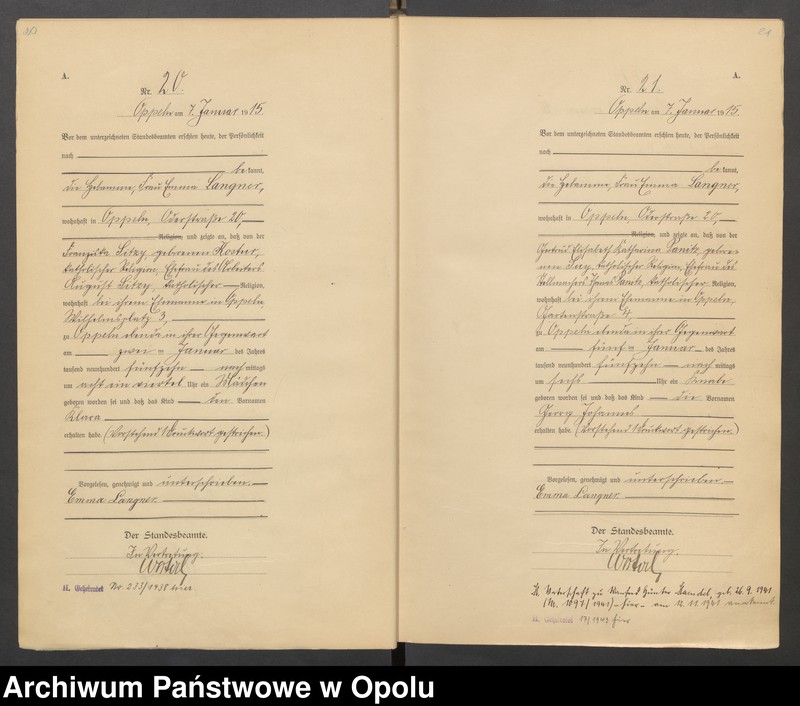 20
A.
Nr. 20.
Oppeln am 7. Januar 1915.
Vor dem unterzeichneten Standesbeamten erschien heute, der Persönlichkeit
nach
bekannt,
die Hebamme, Frau Emma Langner,
wohnhaft in Oppeln, Oderstraße 20,
Religion, und zeigte an, daß von der
Franziska Sitzy geborenen
katholischer Religion, Ehefrau des Arbeiters
August Sitzy, katholischer Religion,
wohnhaft bei ihrem Ehemanne in Oppeln
Wilhelmsplatz 3,
zu Oppeln ebenda in ihrer Gegenwart
am zwei = Januar des Jahres
tausend neunhundert fünfzehn nach mittags
um acht ein viertel Uhr ein Mädchen
geboren worden sei und daß das Kind den Vornamen
Klara
erhalten habe. (Vorstehend 1 Druckwort gestrichen.)
Vorgelesen, genehmigt und unterschrieben.
Emma Langner
Der Standesbeamte.
In Vertretung.
H. Geheiratet Nr 233/1938 hier
21
A.
Nr. 21.
Oppeln am 7. Januar 1915.
Vor dem unterzeichneten Standesbeamten erschien heute, der Persönlichkeit
nach
bekannt,
die Hebamme, Frau Emma Langner,
wohnhaft in Oppeln, Oderstraße 20,
Religion, und zeigte an, daß von der
Elisabeth Katharina gebore
nen katholischer Religion, Ehefrau des
Stellmachers katholischer Religion,
wohnhaft bei ihrem Ehemanne in Oppeln,
Gartenstraße 4,
zu Oppeln ebenda in ihrer Gegenwart
am fünf = Januar des Jahres
tausend neunhundert fünfzehn nach mittags
um sechs Uhr ein Knabe
geboren worden sei und daß das Kind die Vornamen
Georg Johannes
erhalten habe. (Vorstehend 1 Druckwort gestrichen.)
Vorgelesen, genehmigt und unterschrieben
Emma Langner
Der Standesbeamte.
In Vertretung.
Vaterschaft zu Manfred Günter geb. 26.9.1941
(Nr. 1097/1941) – hier – am 12.11.1941 anerkannt.
H. Geheiratet 17/1943 hier
Archiwum Państwowe w Opolu